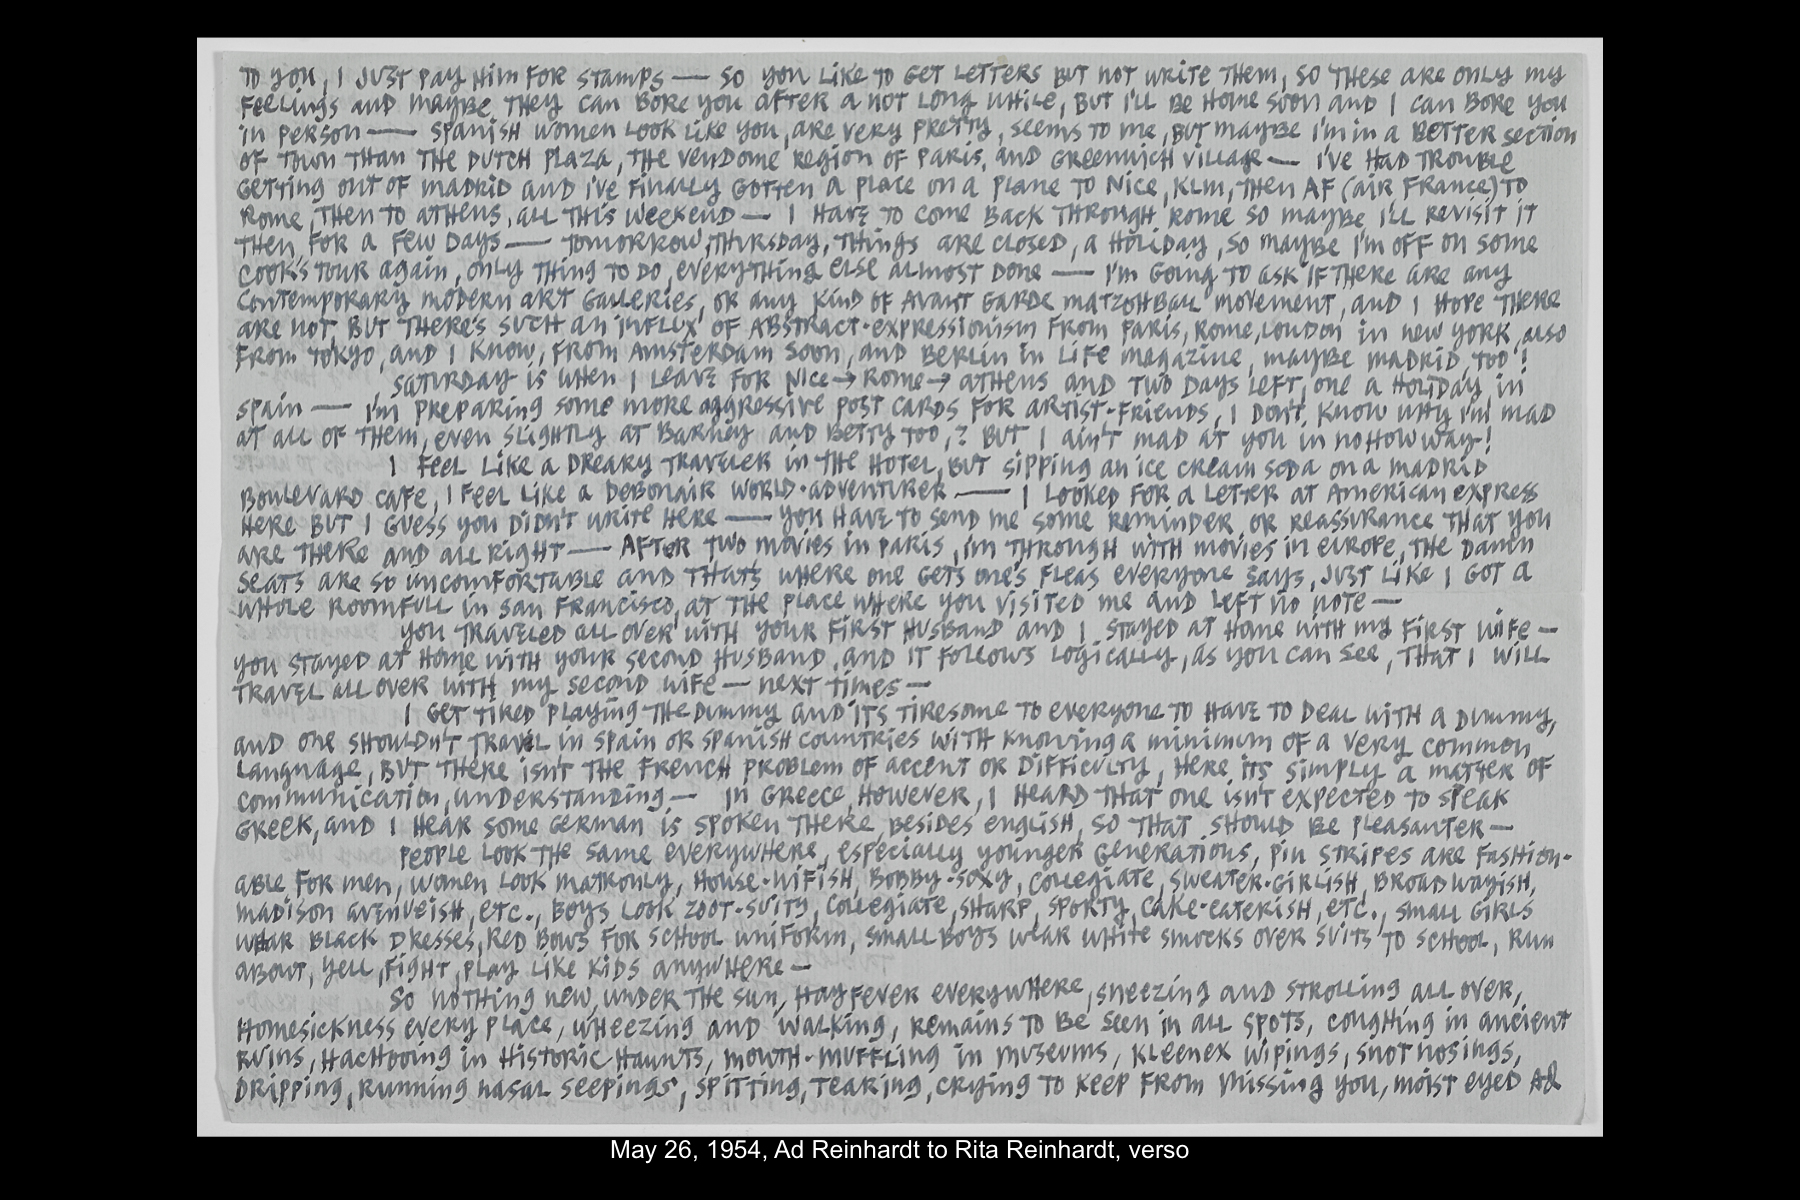 TO YOU, I JUST PAY HIM FOR STAMPS — SO YOU LIKE TO GET LETTERS BUT NOT WRITE THEM, SO THESE ARE ONLY MY
FEELINGS AND MAYBE THEY CAN BORE YOU AFTER A NOT LONG WHILE, BUT I'LL BE HOME SOON AND I CAN BORE YOU
IN PERSON — SPANISH WOMEN LOOK LIKE YOU, ARE VERY PRETTY, SEEMS TO ME, BUT MAYBE I'M IN A BETTER SECTION
OF TOWN THAN THE DUTCH PLAZA, THE VENDOME REGION OF PARIS, AND GREENWICH VILLAGE — I'VE HAD TROUBLE
GETTING OUT OF MADRID AND I'VE FINALLY GOTTEN A PLACE ON A PLANE TO NICE, KLM, THEN AF (AIR FRANCE) TO
ROME, THEN TO ATHENS, ALL THIS WEEKEND — I HAVE TO COME BACK THROUGH ROME SO MAYBE I'LL REVISIT IT
THEN, FOR A FEW DAYS — TOMORROW, THURSDAY, THINGS ARE CLOSED, A HOLIDAY, SO MAYBE I'M OFF ON SOME
COOK'S TOUR AGAIN, ONLY THING TO DO, EVERYTHING ELSE ALMOST DONE — I'M GOING TO ASK IF THERE ARE ANY
CONTEMPORARY MODERN ART GALLERIES, OR ANY KIND OF AVANT GARDE MATZOHBALL MOVEMENT, AND I HOPE THERE
ARE NOT, BUT THERE'S SUCH AN INFLUX OF ABSTRACT-EXPRESSIONISM FROM PARIS, ROME, LONDON IN NEW YORK, ALSO
FROM TOKYO, AND I KNOW, FROM AMSTERDAM SOON, AND BERLIN IN LIFE MAGAZINE, MAYBE MADRID, TOO!
SATURDAY IS WHEN I LEAVE FOR NICE → ROME → ATHENS AND TWO DAYS LEFT, ONE A HOLIDAY, IN
SPAIN — I'M PREPARING SOME MORE AGGRESSIVE POST CARDS FOR ARTIST-FRIENDS, I DON'T KNOW WHY I'M MAD
AT ALL OF THEM, EVEN SLIGHTLY AT BARNEY AND BETTY TOO,? BUT I AIN'T MAD AT YOU IN NOHOW WAY!
I FEEL LIKE A DREARY TRAVELER IN THE HOTEL, BUT SIPPING AN ICE CREAM SODA ON A MADRID
BOULEVARD CAFE, I FEEL LIKE A DEBONAIR WORLD-ADVENTURER — I LOOKED FOR A LETTER AT AMERICAN EXPRESS
HERE BUT I GUESS YOU DIDN'T WRITE HERE — YOU HAVE TO SEND ME SOME REMINDER OR REASSURANCE THAT YOU
ARE THERE AND ALL RIGHT — AFTER TWO MOVIES IN PARIS, I'M THROUGH WITH MOVIES IN EUROPE, THE DAMN
SEATS ARE SO UNCOMFORTABLE AND THAT'S WHERE ONE GETS ONE'S FLEAS EVERYONE SAYS, JUST LIKE I GOT A
WHOLE ROOMFULL IN SAN FRANCISCO, AT THE PLACE WHERE YOU VISITED ME AND LEFT NO NOTE —
YOU TRAVELED ALL OVER WITH YOUR FIRST HUSBAND AND I STAYED AT HOME WITH MY FIRST WIFE —
YOU STAYED AT HOME WITH YOUR SECOND HUSBAND, AND IT FOLLOWS LOGICALLY, AS YOU CAN SEE, THAT I WILL
TRAVEL ALL OVER WITH MY SECOND WIFE — NEXT TIMES —
I GET TIRED PLAYING THE DUMMY AND ITS TIRESOME TO EVERYONE TO HAVE TO DEAL WITH A DUMMY,
AND ONE SHOULDN'T TRAVEL IN SPAIN OR SPANISH COUNTRIES WITH KNOWING A MINIMUM OF A VERY COMMON
LANGUAGE, BUT THERE ISN'T THE FRENCH PROBLEM OF ACCENT OR DIFFICULTY, HERE ITS SIMPLY A MATTER OF
COMMUNICATION, UNDERSTANDING — IN GREECE, HOWEVER, I HEARD THAT ONE ISN'T EXPECTED TO SPEAK
GREEK, AND I HEAR SOME GERMAN IS SPOKEN THERE BESIDES ENGLISH, SO THAT SHOULD BE PLEASANTER —
PEOPLE LOOK THE SAME EVERYWHERE, ESPECIALLY YOUNGER GENERATIONS, PIN STRIPES ARE FASHION-
ABLE FOR MEN, WOMEN LOOK MATRONLY, HOUSE-WIFISH, BOBBY-SOXY, COLLEGIATE, SWEATER-GIRLISH, BROADWAYISH,
MADISON AVENUEISH, ETC., BOYS LOOK ZOOT-SUITY, COLLEGIATE, SHARP, SPORTY, CAKE-EATERISH, ETC., SMALL GIRLS
WEAR BLACK DRESSES, RED BOWS FOR SCHOOL UNIFORM, SMALL BOYS WEAR WHITE SMOCKS OVER SUITS TO SCHOOL, RUN
ABOUT, YELL, FIGHT, PLAY LIKE KIDS ANYWHERE —
SO NOTHING NEW, UNDER THE SUN, HAYFEVER EVERYWHERE, SNEEZING AND STROLLING ALL OVER,
HOMESICKNESS EVERY PLACE, WHEEZING AND WALKING, REMAINS TO BE SEEN IN ALL SPOTS, COUGHING IN ANCIENT
RUINS, HACHOOING IN HISTORIC HAUNTS, MOUTH-MUFFLING IN MUSEUMS, KLEENEX WIPINGS, SNOT NOSINGS,
DRIPPING, RUNNING NASAL SEEPINGS, SPITTING, TEARING, CRYING TO KEEP FROM MISSING YOU, MOIST EYED AD
May 26, 1954, Ad Reinhardt to Rita Reinhardt, verso